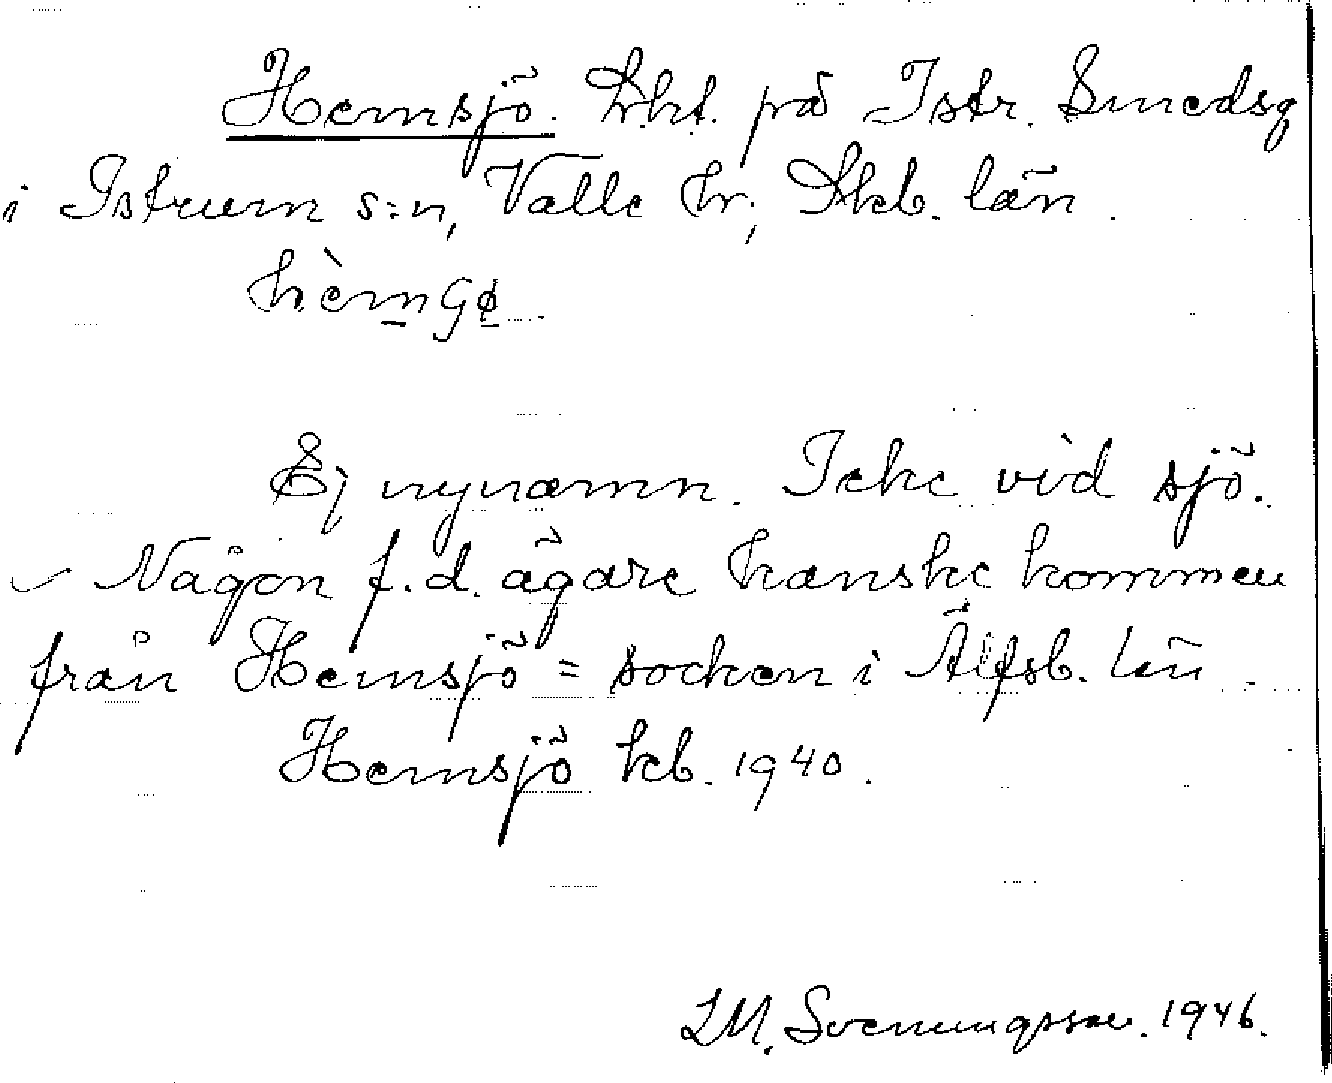 Hemsjö. Lht. på Istr. Smedsg
i Istrum s:n, Valle hr, Skb. län.
hèmɕø
Ej nynamn. Icke vid sjö.
Någon f.d. ägare kanske kommen
från Hemsjö = socken i Älfsb. län.
Hemsjö kb. 1940.
LM. Svenungsson. 1946.